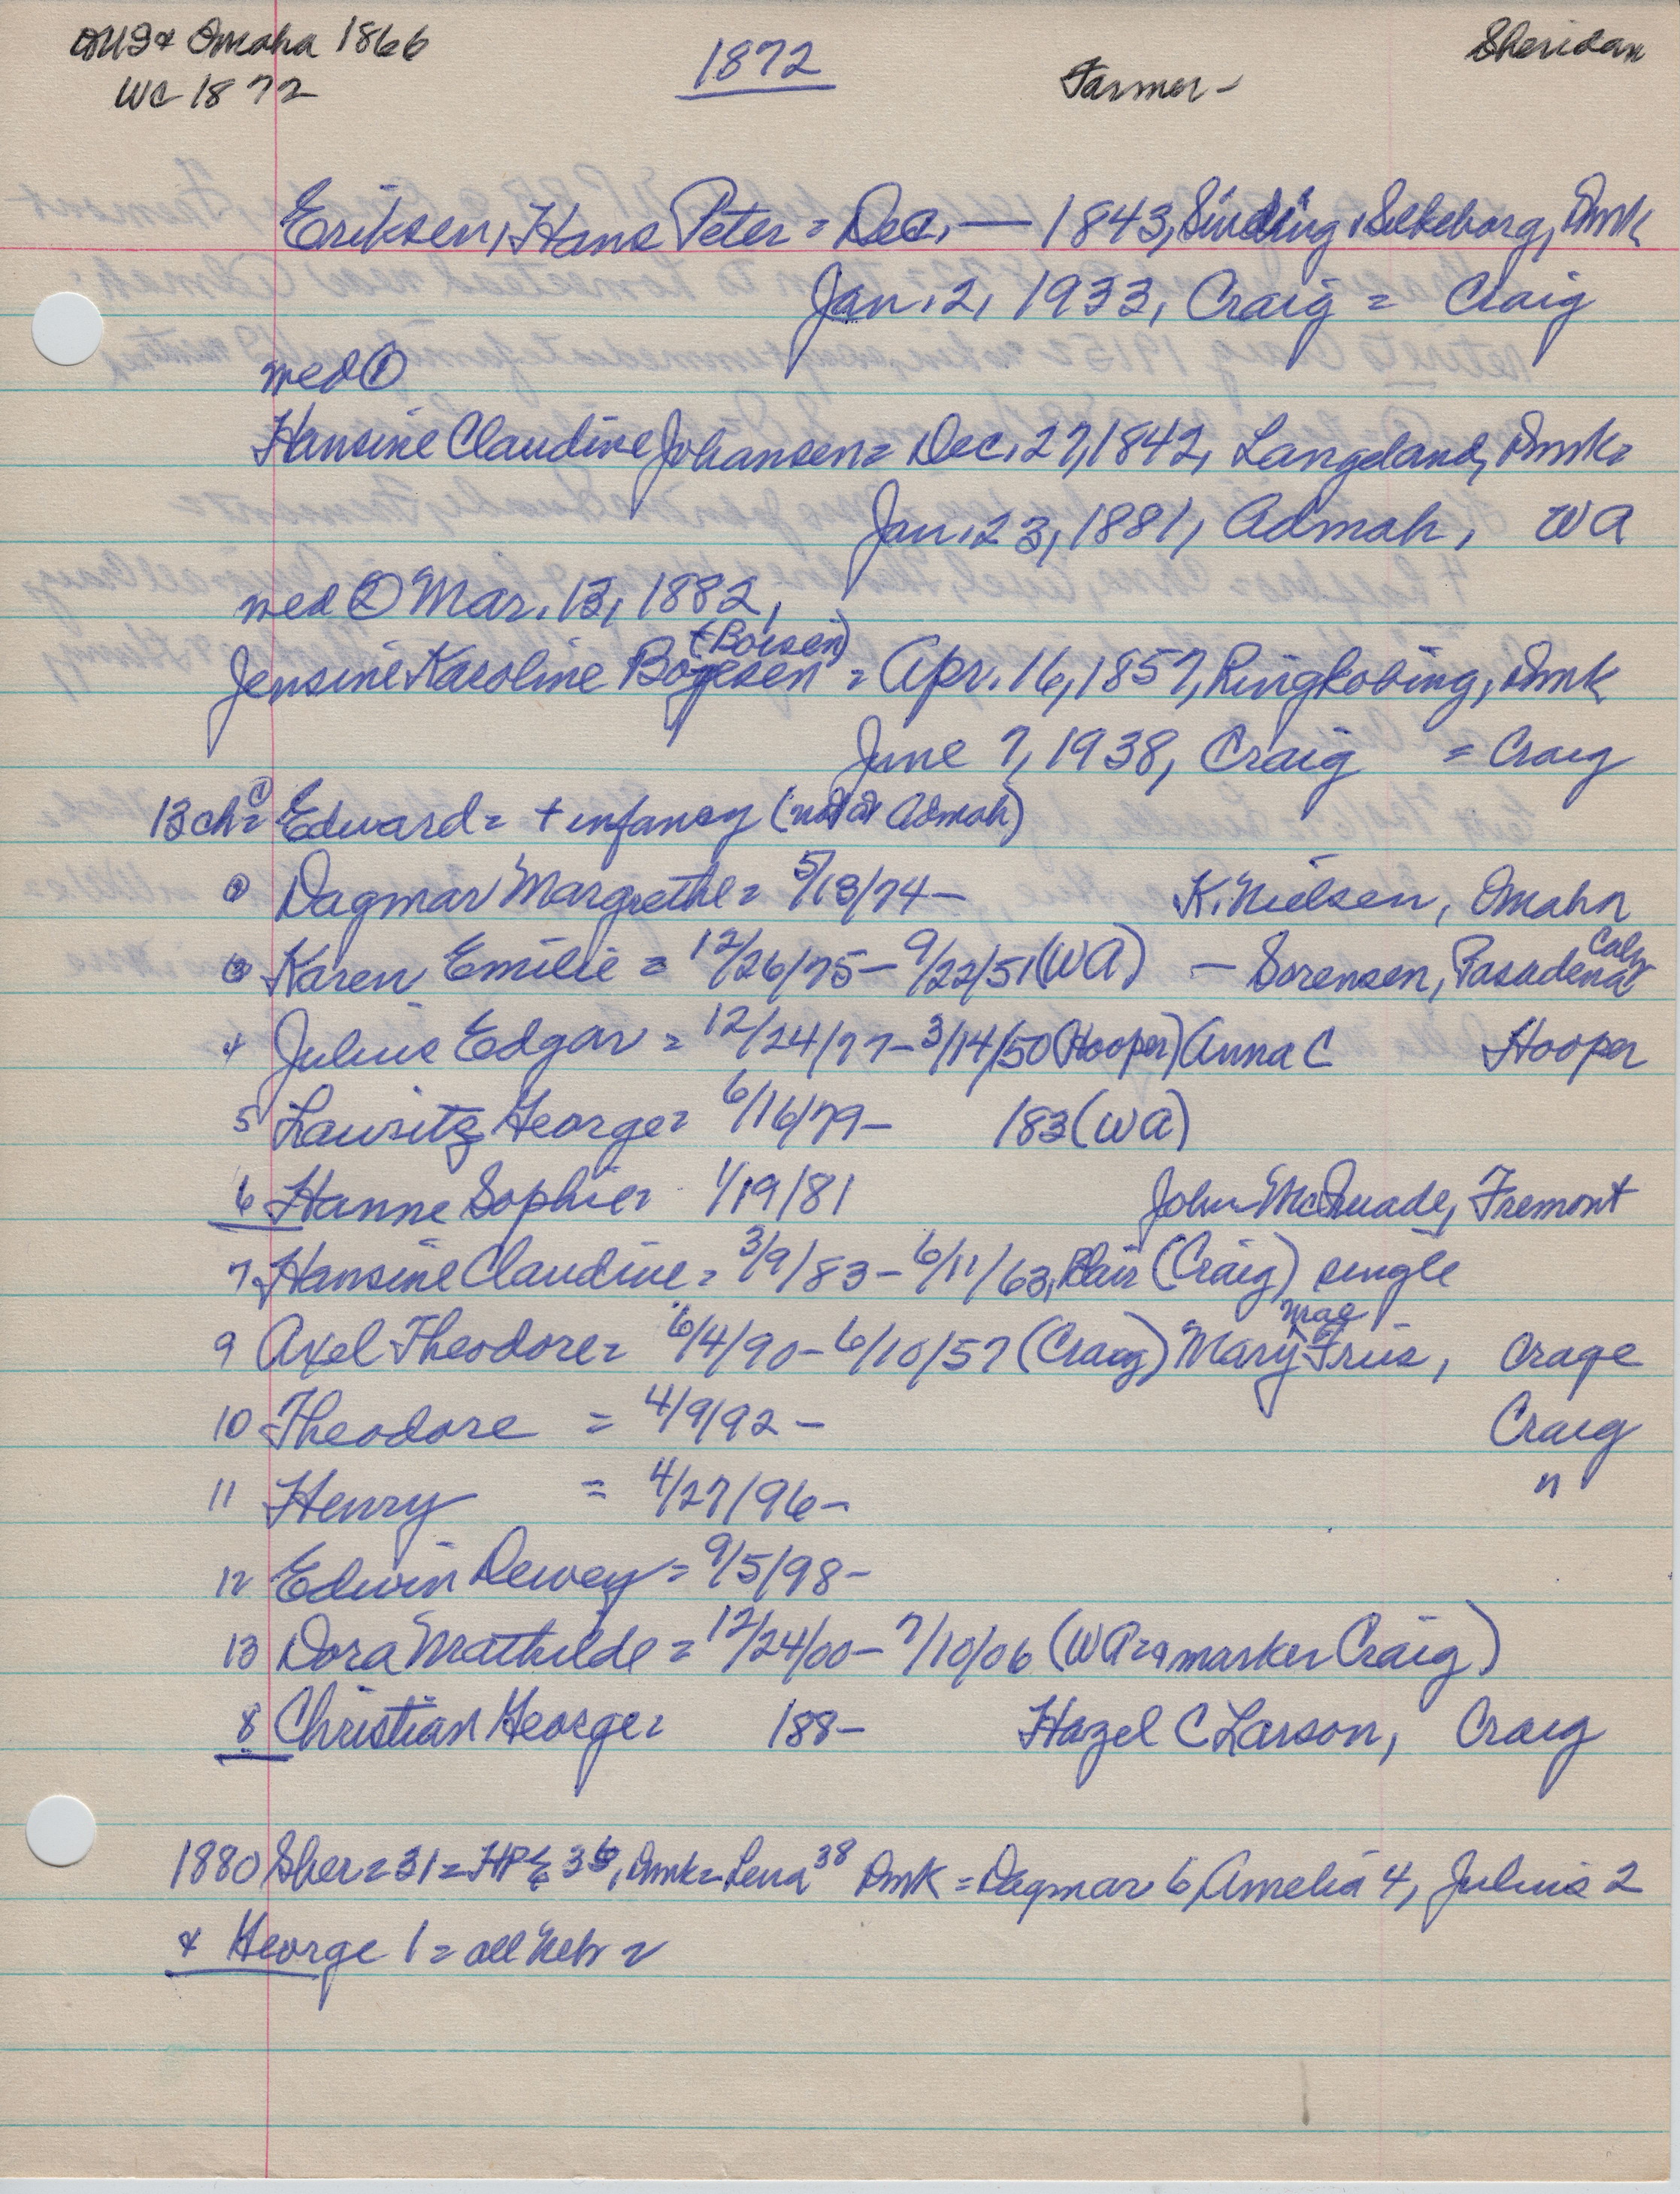 & Omaha 1866
WC 1872
1872
Farmer -
Sheridan
Eriksen, Hans Peter = Dec. — 1843, Sinding, Silkeborg, Dmk
Jan. 2, 1933, Craig = Craig
med ①
Hansine Claudine Johansen = Dec. 27, 1842, Langeland, Dmk =
Jan. 23, 1881, Admah, WA
med ② Mar. 13, 1882,
(Boisen)
Jensine Karoline = Apr. 16, 1857, Ringkobing, Dmk
June 7, 1938, Craig = Craig
13 ch = ① Edward = + infancy (not at Admah)
Dagmar Margrethe = 5/13/74 - K. Nielsen, Omaha
3 Karen Emilie = 12/26/75 - 9/22/51 (WA) - Sorensen, Pasadena Calif
4 Julius Edgar = 12/24/77 - 3/14/50 (Hooper) Anna C Hooper
5 Lauritz George = 6/16/79 - 183 (WA)
6 Hanne Sophie = 1/19/81 John McQuade, Fremont
7 Hansine Claudine = 3/9/83 - 6/11/63, Blair (Craig) single
9 Axel Theodore = 6/4/90 - 6/10/57 (Craig) Mary Mae Friis, Crage
10 Theodore = 4/9/92 - Craig
11 Henry = 4/27/96 - "
12 Edwin Dewey = 9/5/98 -
13 Dora Mathilde = 12/24/00 - 7/10/06 (WA = a marker Craig)
8 Christian George = 188- Hazel C Larson, Craig
1880 Sher = 31 = HPE 36, Dmk = Lena 38 Dmk = Dagmar 6, Amelia 4, Julius 2
& George 1 = all Nebr =